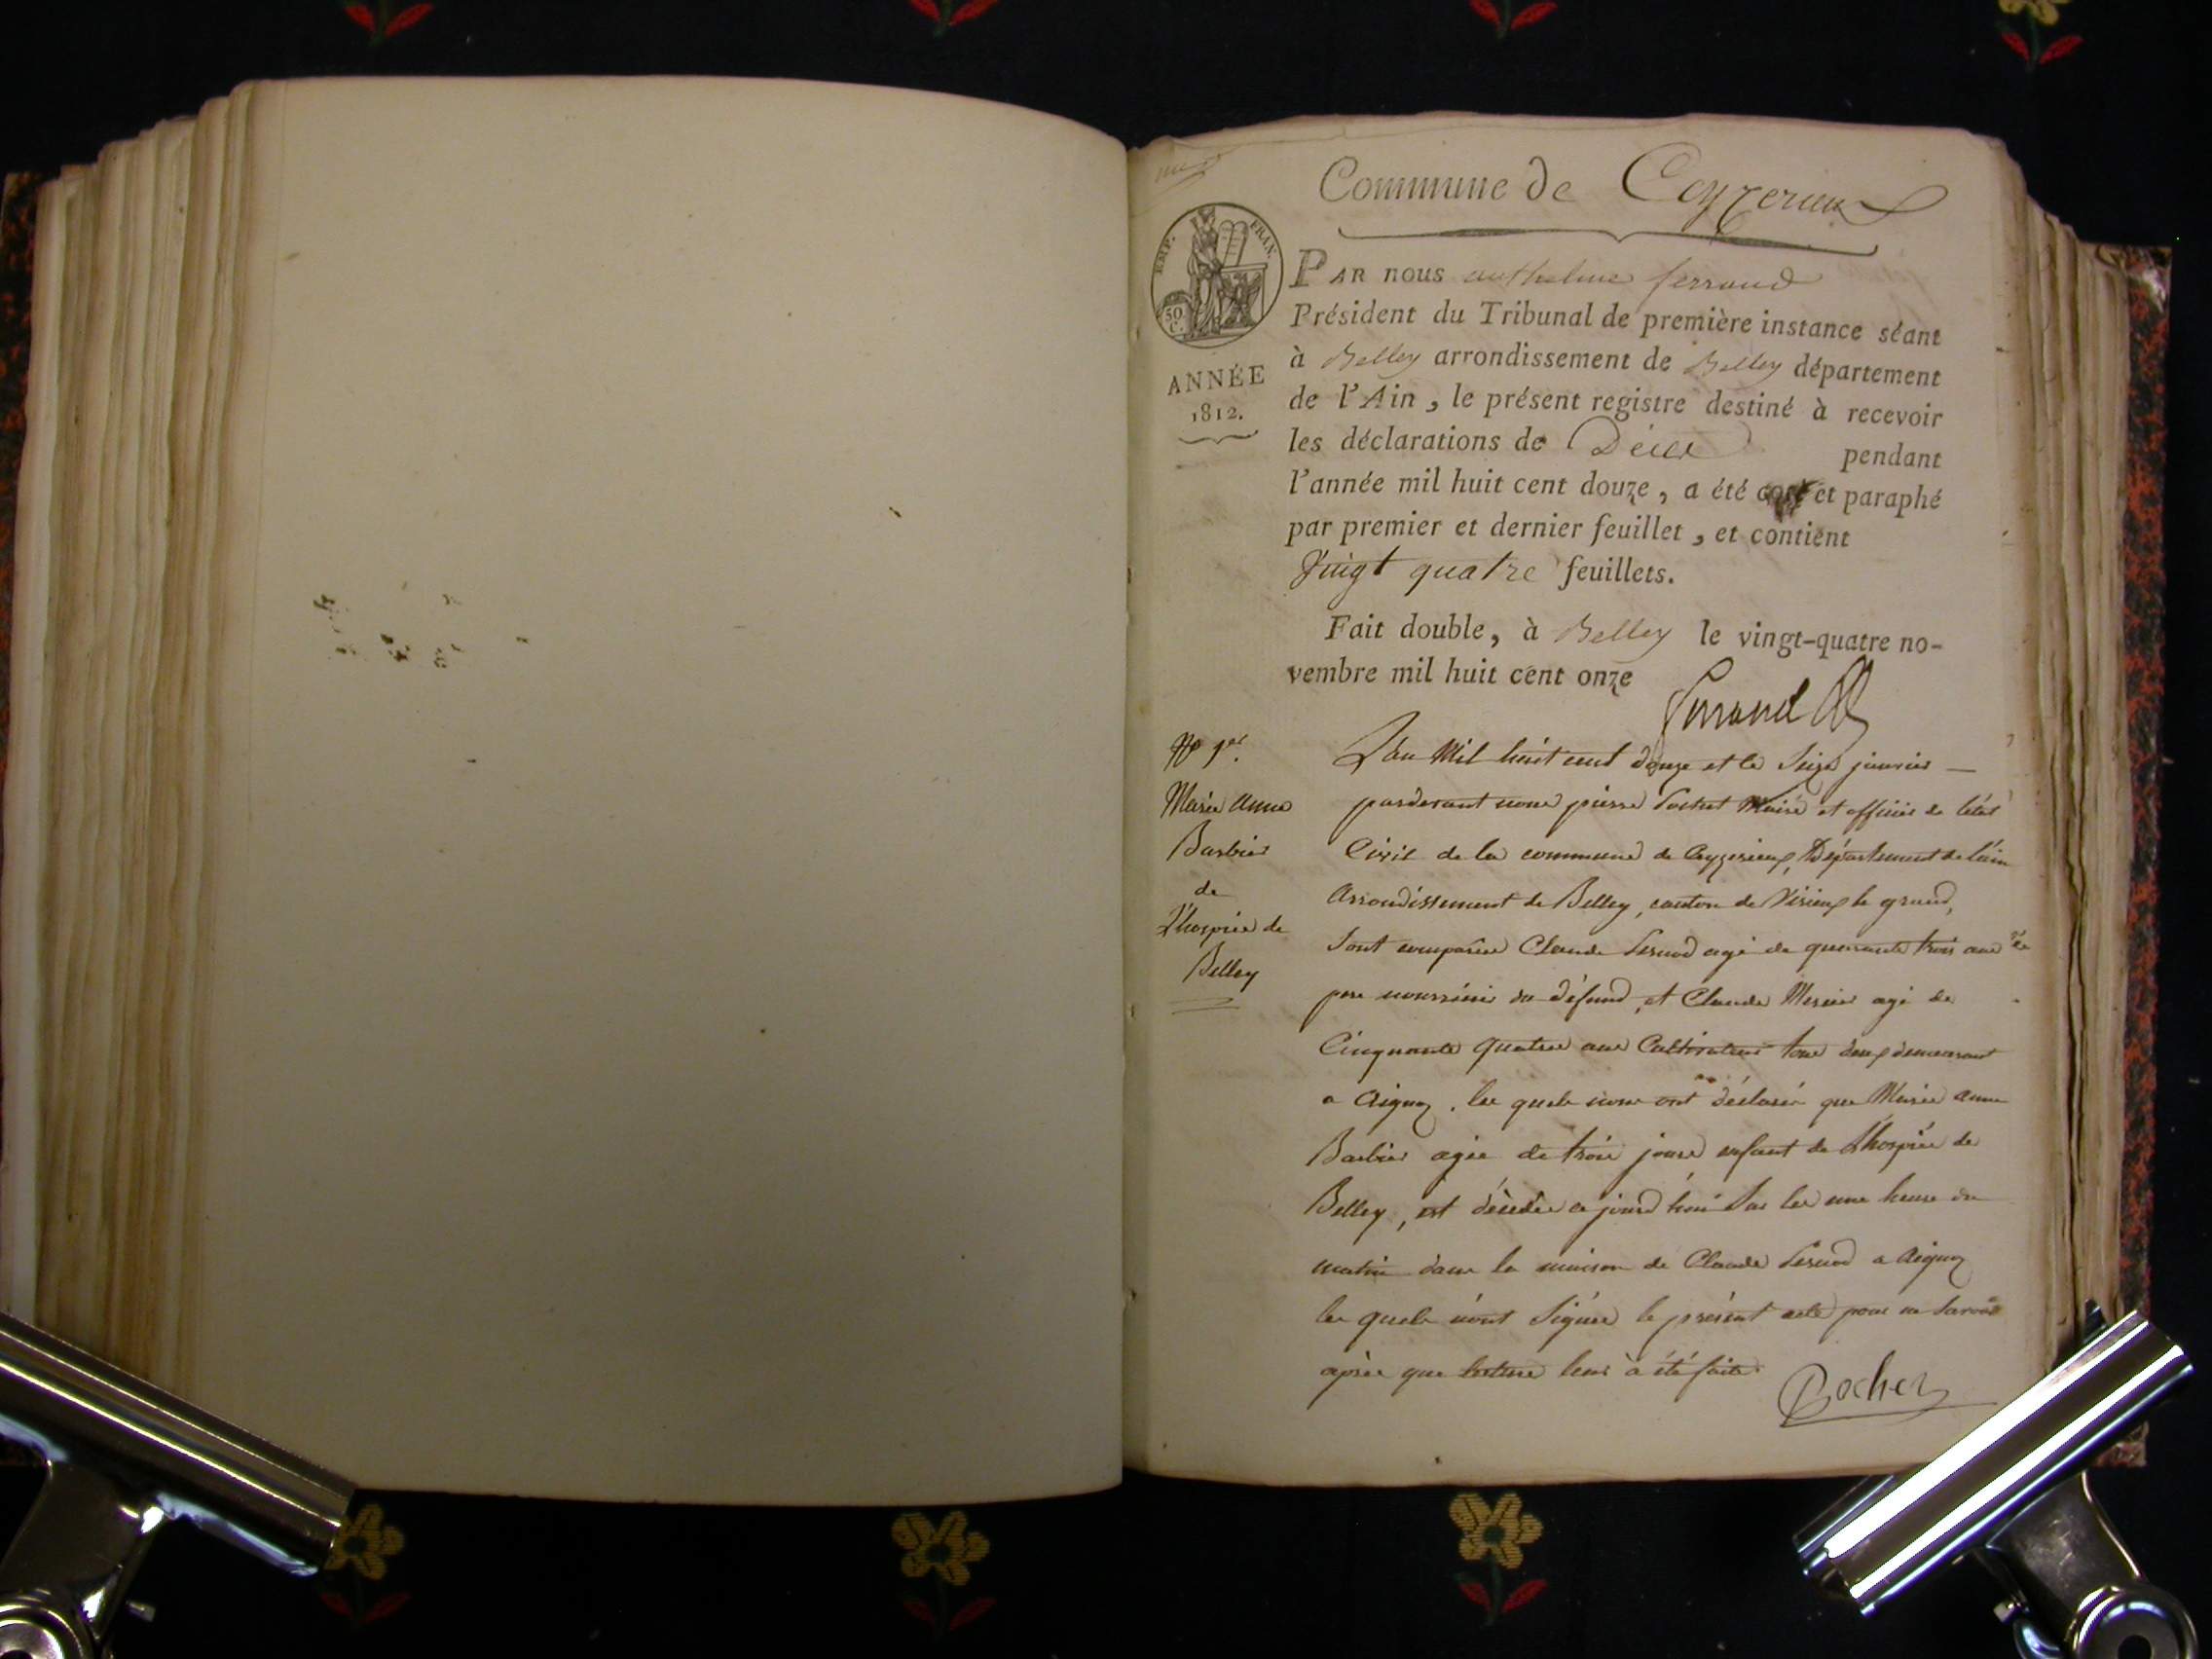 Commune de Ceyzerieux
EMP. FRAN.
50
C.
ANNÉE
1812.
PAR nous anthelme ferrand
Président du Tribunal de première instance séant
à Belley arrondissement de Belley département
de l'Ain, le présent registre destiné à recevoir
les déclarations de Décès pendant
l'année mil huit cent douze, a été coté et paraphé
par premier et dernier feuillet, et contient
Vingt quatre feuillets.
Fait double, à Belley le vingt-quatre no-
vembre mil huit cent onze
Ferrand
No 1er.
Marie Anne
Barbier
de
L'hospice de
Belley
L'an Mil huit cent douze et le Seize janvier
pardevant nous pierre Maire et officier de l'état
Civil de la commune de Ceyzerieux, Département de l'ain
Arrondissement de Belley, canton de Virieux le grand,
Sont comparus Claude agé de quarante trois ans
pere nourricier du défund, et Claude Mercier agé de
Cinquante quatre ans Cultivateurs tous deux demeurant
a Aignoz. les quels nous ont déclarés que Marie anne
Barbier agée de trois jours enfant de L'hospice de
Belley, est décédée ajourd'hui Sur les une heure du
matin dans la maison de Claude a Aignoz
les quels n'ont Signés le présent acte pour ne Savoir
après que lecture leur à été faite.